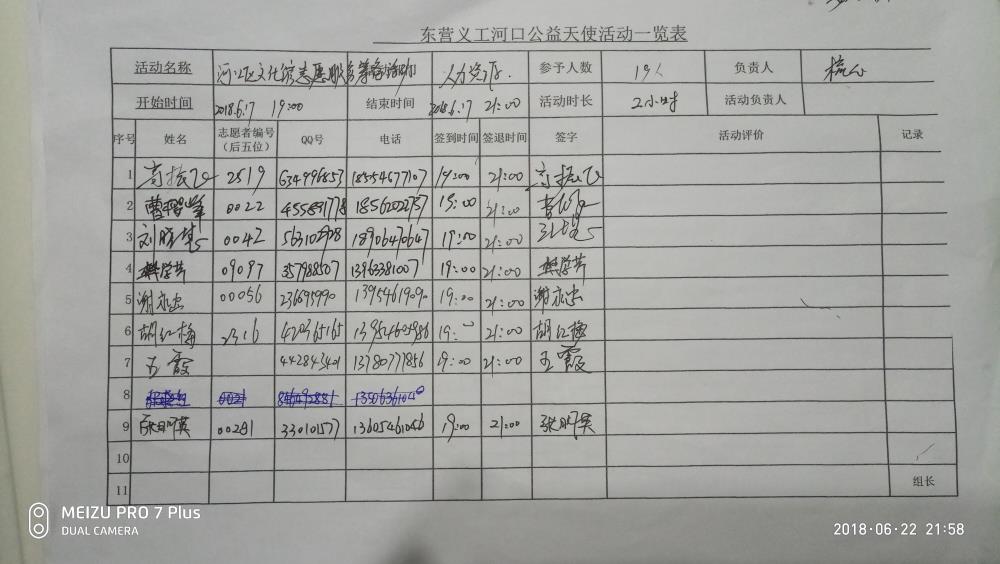 东营义工河口公益天使活动一览表
活动名称 河口区文化馆志愿服务 活动 人力资源. 参予人数 19人 负责人
开始时间 2018.6.17 19:00 结束时间 2018.6.17 21:00 活动时长 2小时 活动负责人
序号 姓名 志愿者编号（后五位） QQ号 电话 签到时间 签退时间 签字 活动评价 记录
1 高振飞 2519 634996853 18554677107 19:00 21:00 高振飞
2 0022 1856202757 19:00 21:00
3 刘 0042 563102908 18906470647 19:00 21:00
4 学芳 09097 357988507 13963381007 19:00 21:00 学芳
5 谢 00056 236695990 13954619090 19:00 21:00 谢
6 胡红梅 2316 420365165 13954605986 19: 21:00 胡红梅
7 王霞 442843401 13780771856 19:00 21:00 王霞
8 0021 846492881
9 张 英 00281 330101577 13605461056 19:00 21:00 张 英
10
11 组长
MEIZU PRO 7 Plus
DUAL CAMERA
2018·06·22 21:58